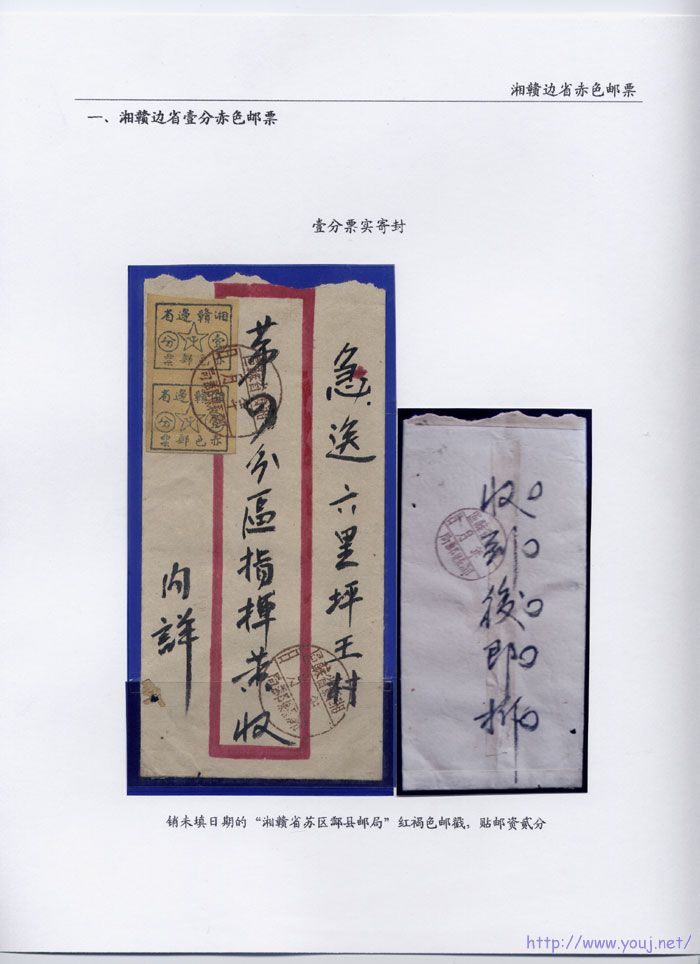 湘赣边省赤色邮票
一、湘赣边省壹分赤色邮票
壹分票实寄封
省邊贛湘
分 壹
票郵色赤
省邊贛湘
分
票郵色赤
急送六里坪王村
第四分區指揮黄收
内詳
收到後即拆
销未填日期的“湘赣省苏区酃县邮局”红褐色邮戳，贴邮资贰分
http://www.youj.net/